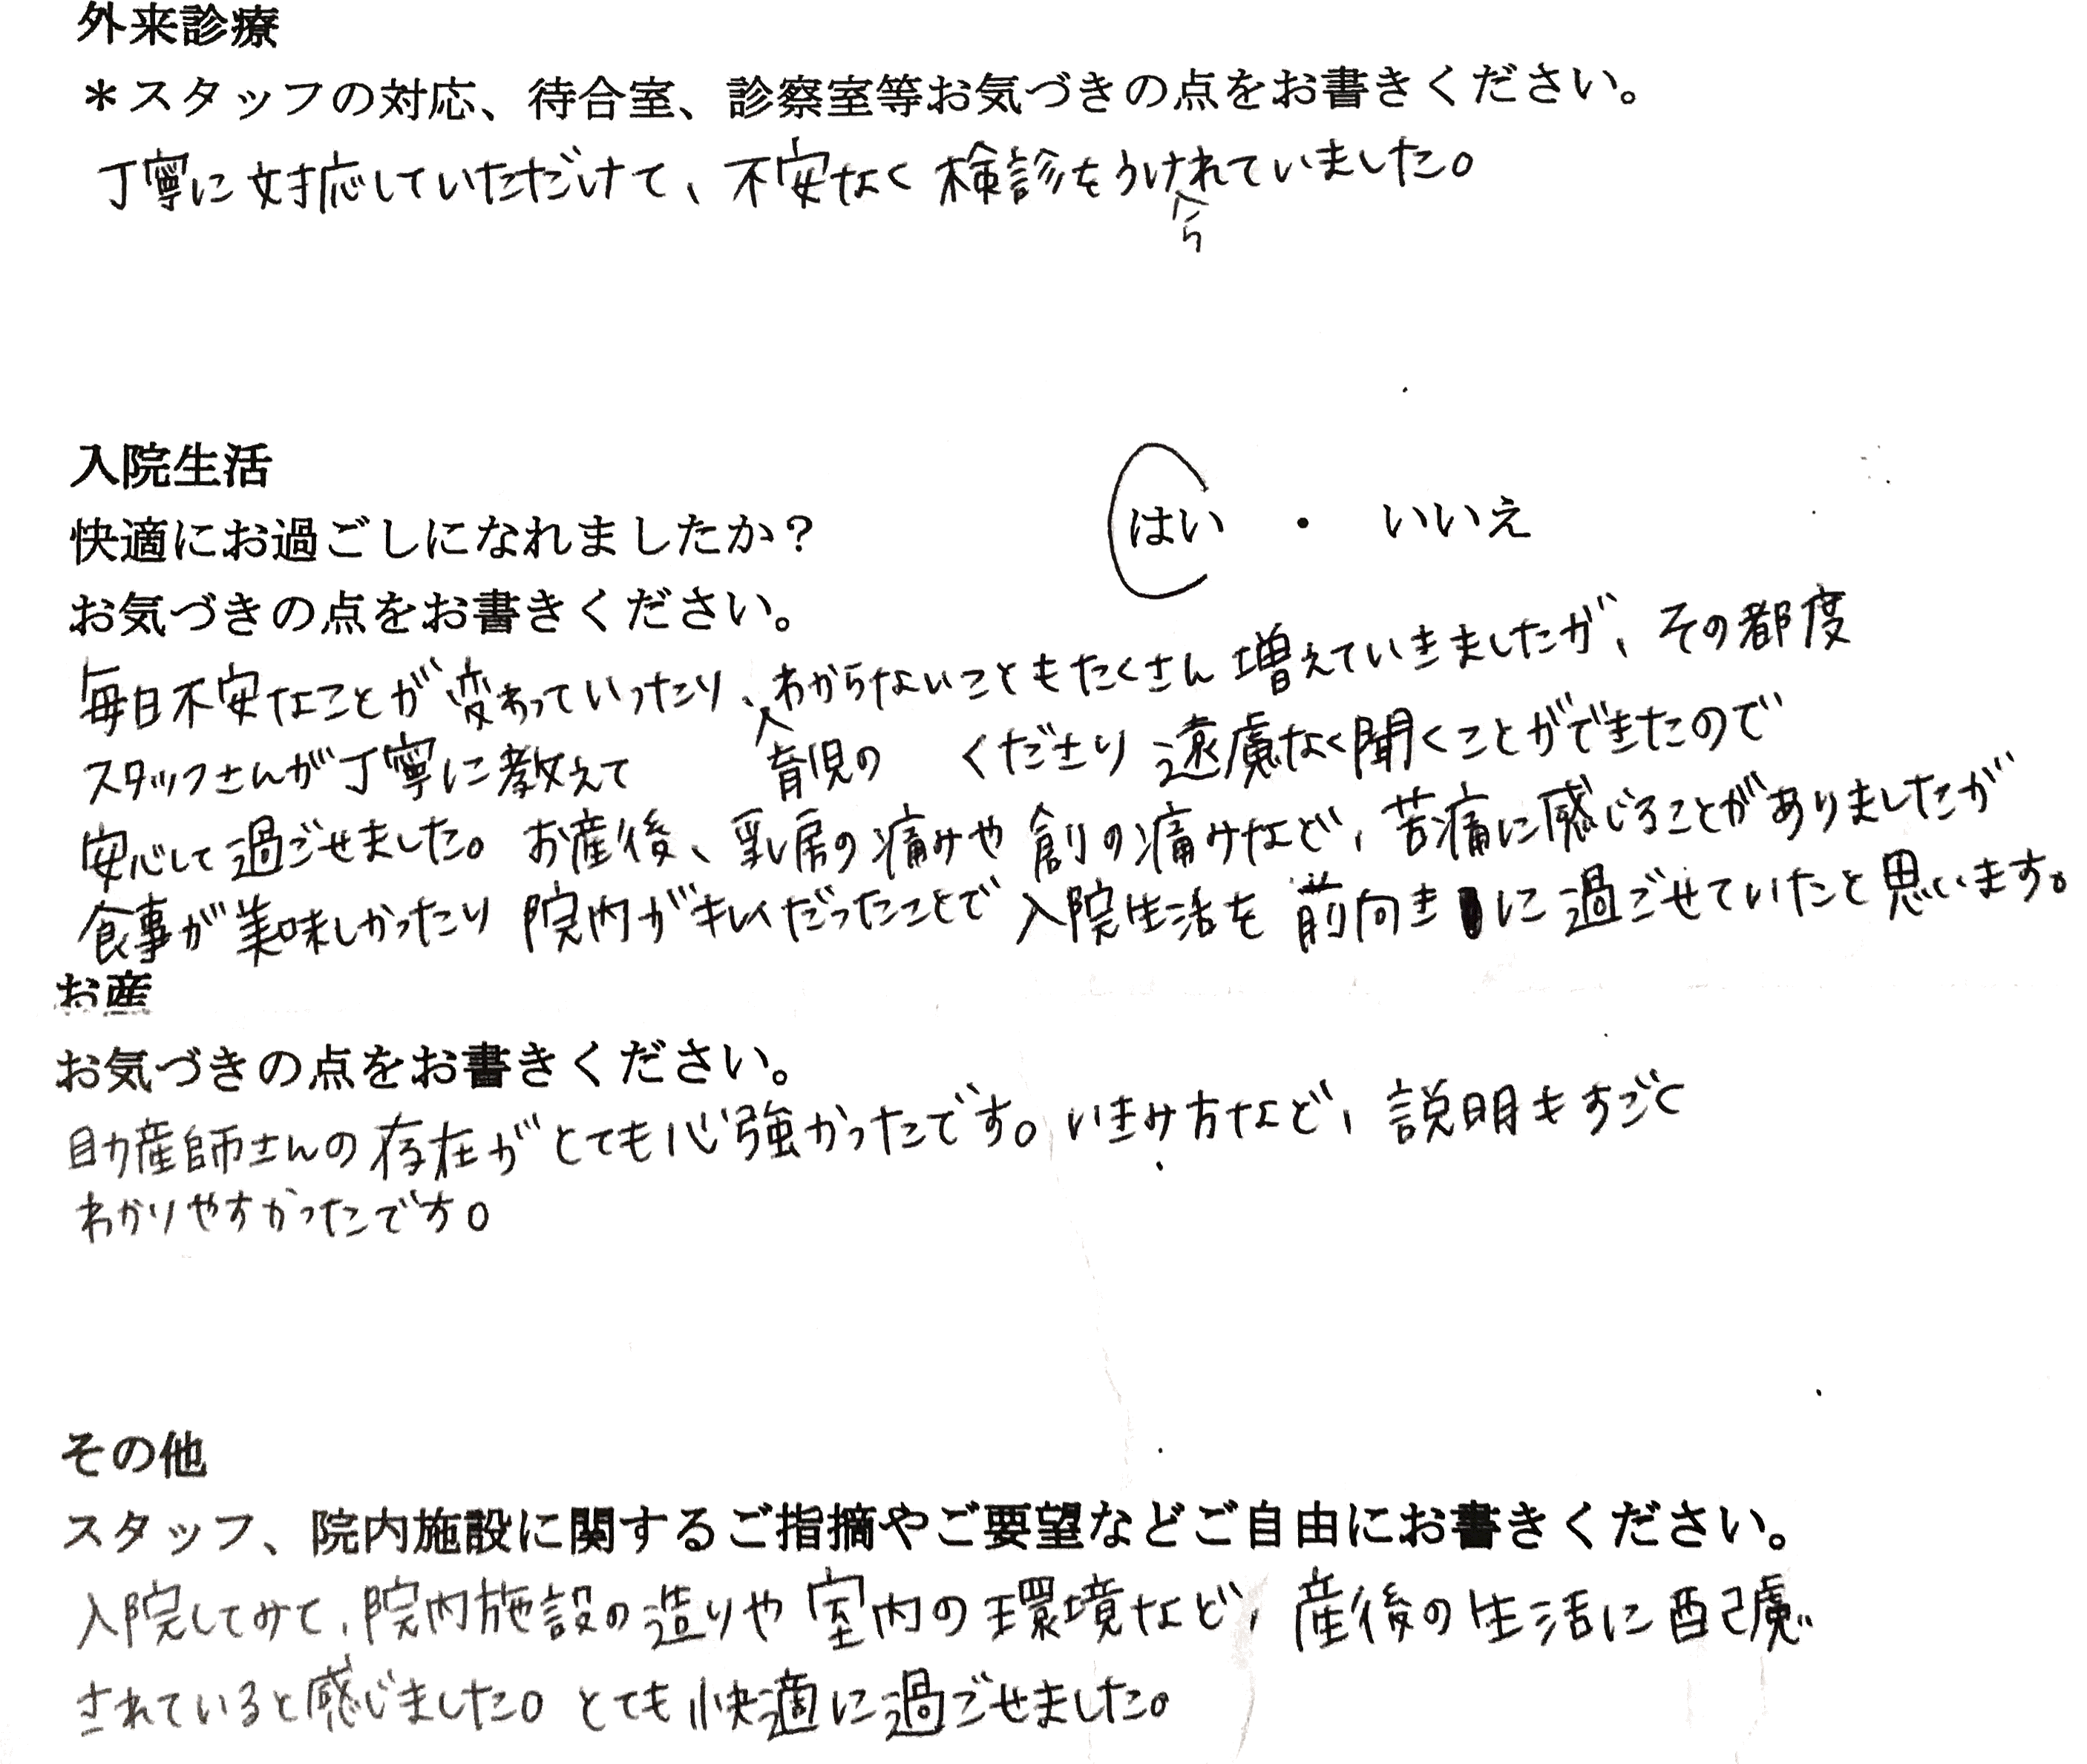 外来診療
＊スタッフの対応、待合室、診察室等お気づきの点をお書きください。
丁寧に対応していただけて、不安なく検診をうけられていました。
入院生活
快適にお過ごしになれましたか？ はい ・ いいえ
お気づきの点をお書きください。
毎日不安なことが変わっていったり、育児のわからないこともたくさん増えていきましたが、その都度
スタッフさんが丁寧に教えてくださり遠慮なく聞くことができたので
安心して過ごせました。お産後、乳房の痛みや創の痛みなど、苦痛に感じることがありましたが
食事が美味しかったり院内がキレイだったことで入院生活を前向きに過ごせていたと思います。
お産
お気づきの点をお書きください。
助産師さんの存在がとても心強かったです。いきみ方など、説明もすごく
わかりやすかったです。
その他
スタッフ、院内施設に関するご指摘やご要望などご自由にお書きください。
入院してみて、院内施設の造りや室内の環境など、産後の生活に配慮
されていると感じました。とても快適に過ごせました。